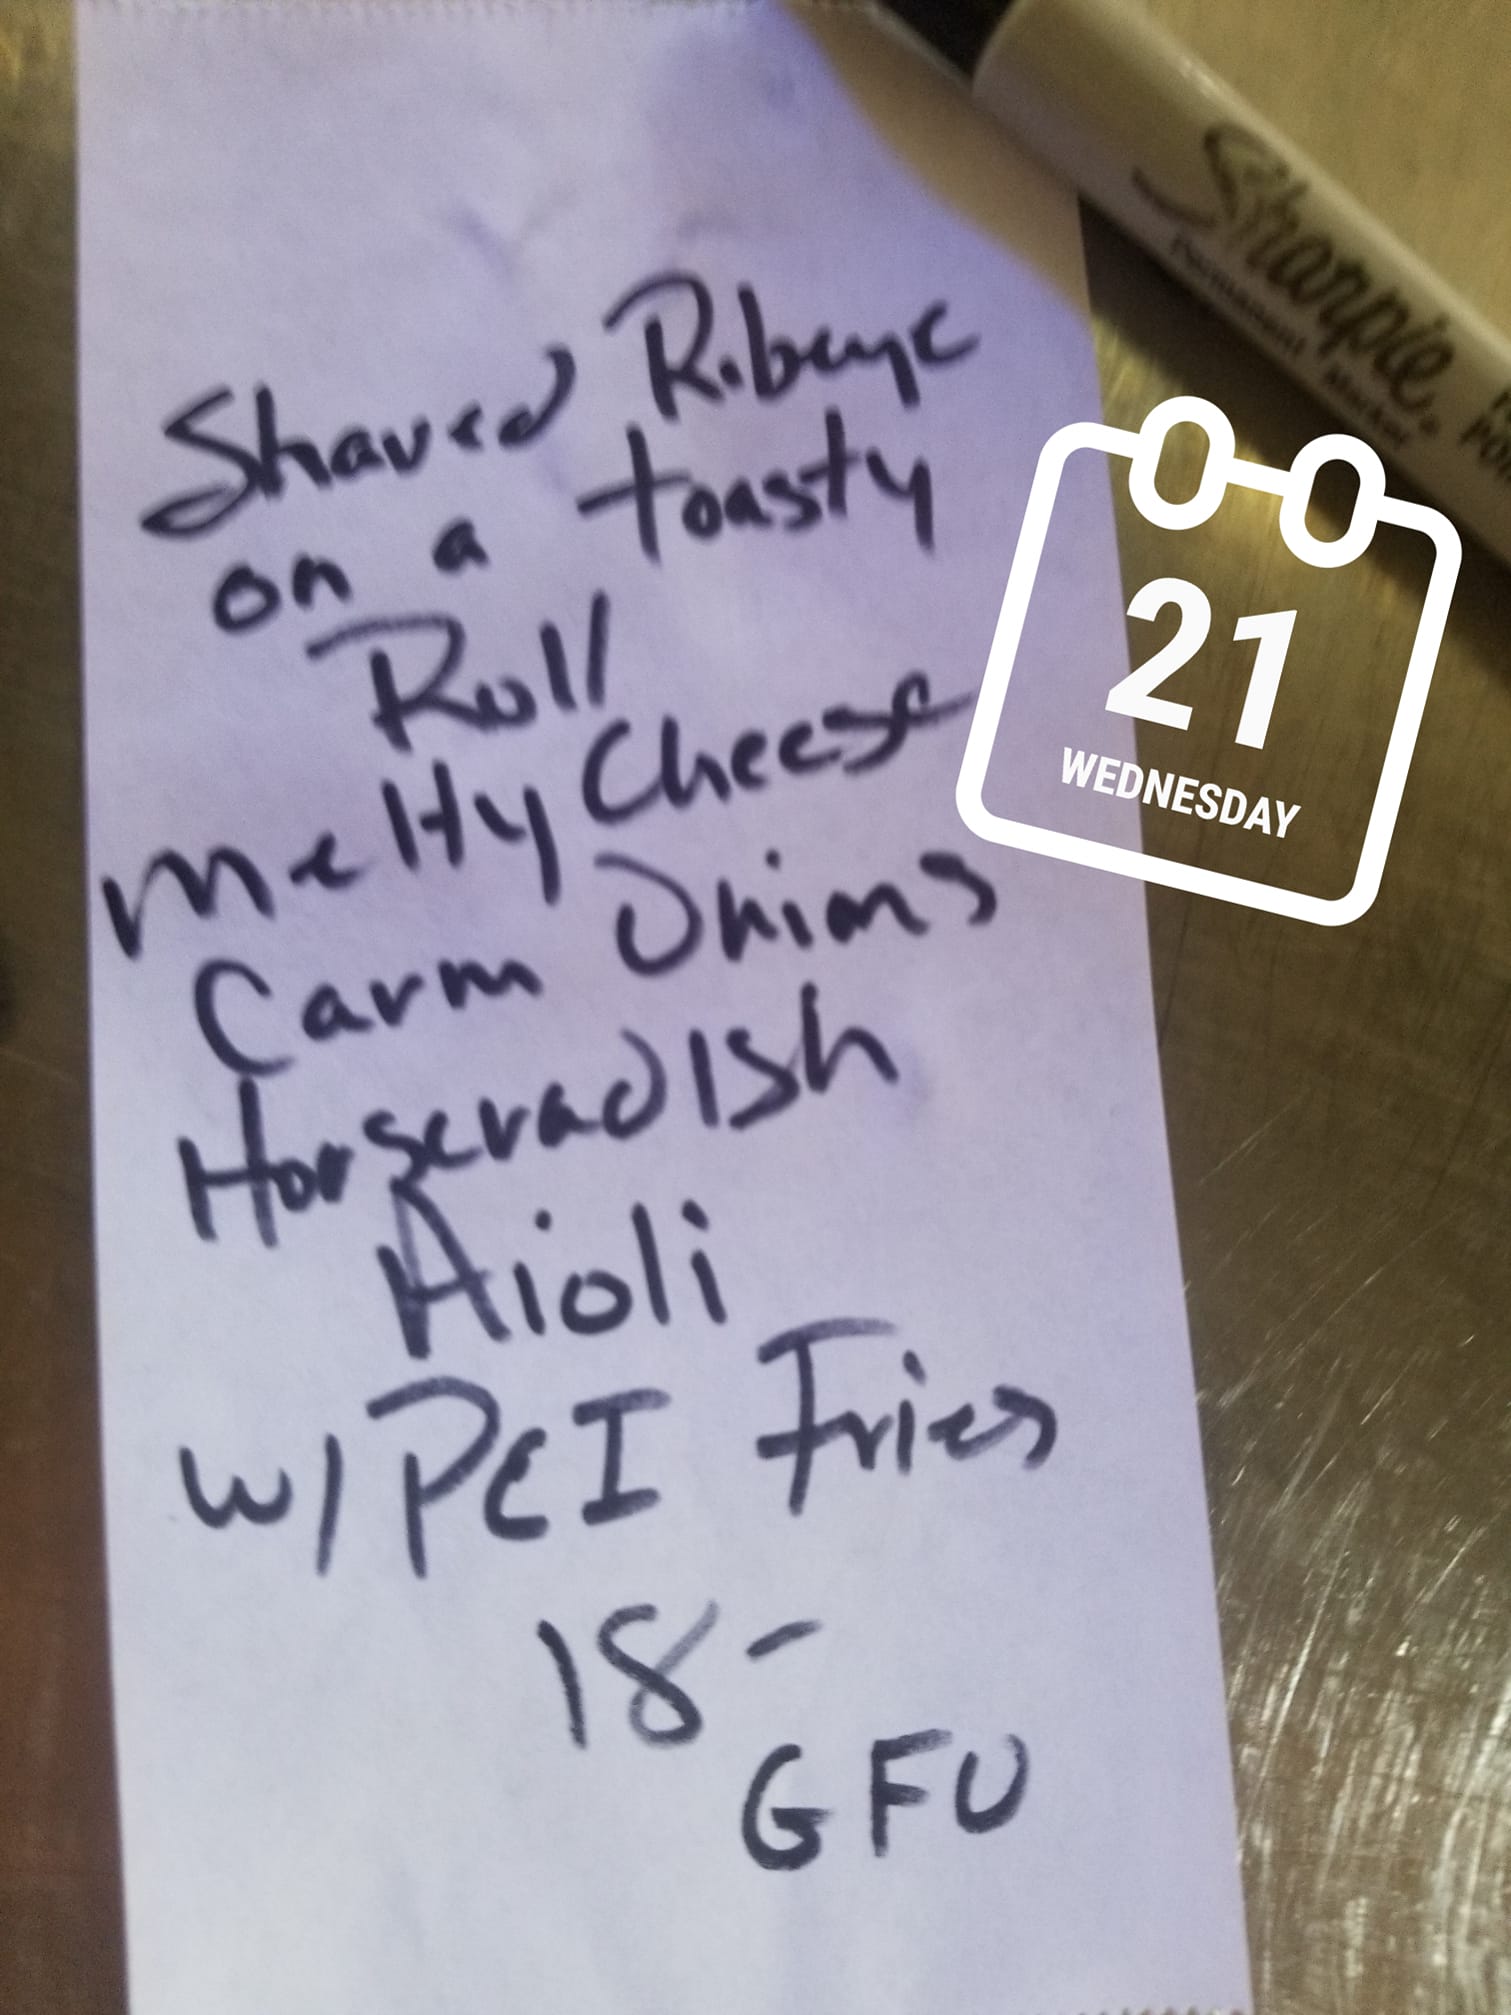 Sharpie.
Permanent Marker
Shaved Ribeye
on a toasty
Roll
Melty Cheese
Carm Onions
Horseradish
Aioli
w/ PEI Fries
18-
GFU
21
WEDNESDAY